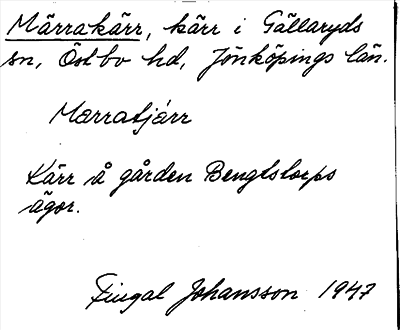 Märrakärr, kärr i Gällaryds
sn, Östbo hd, Jönköpings län.
Mærratjárr
Kärr å gården Bengtstorps
ägor.
Fingal Johansson 1947